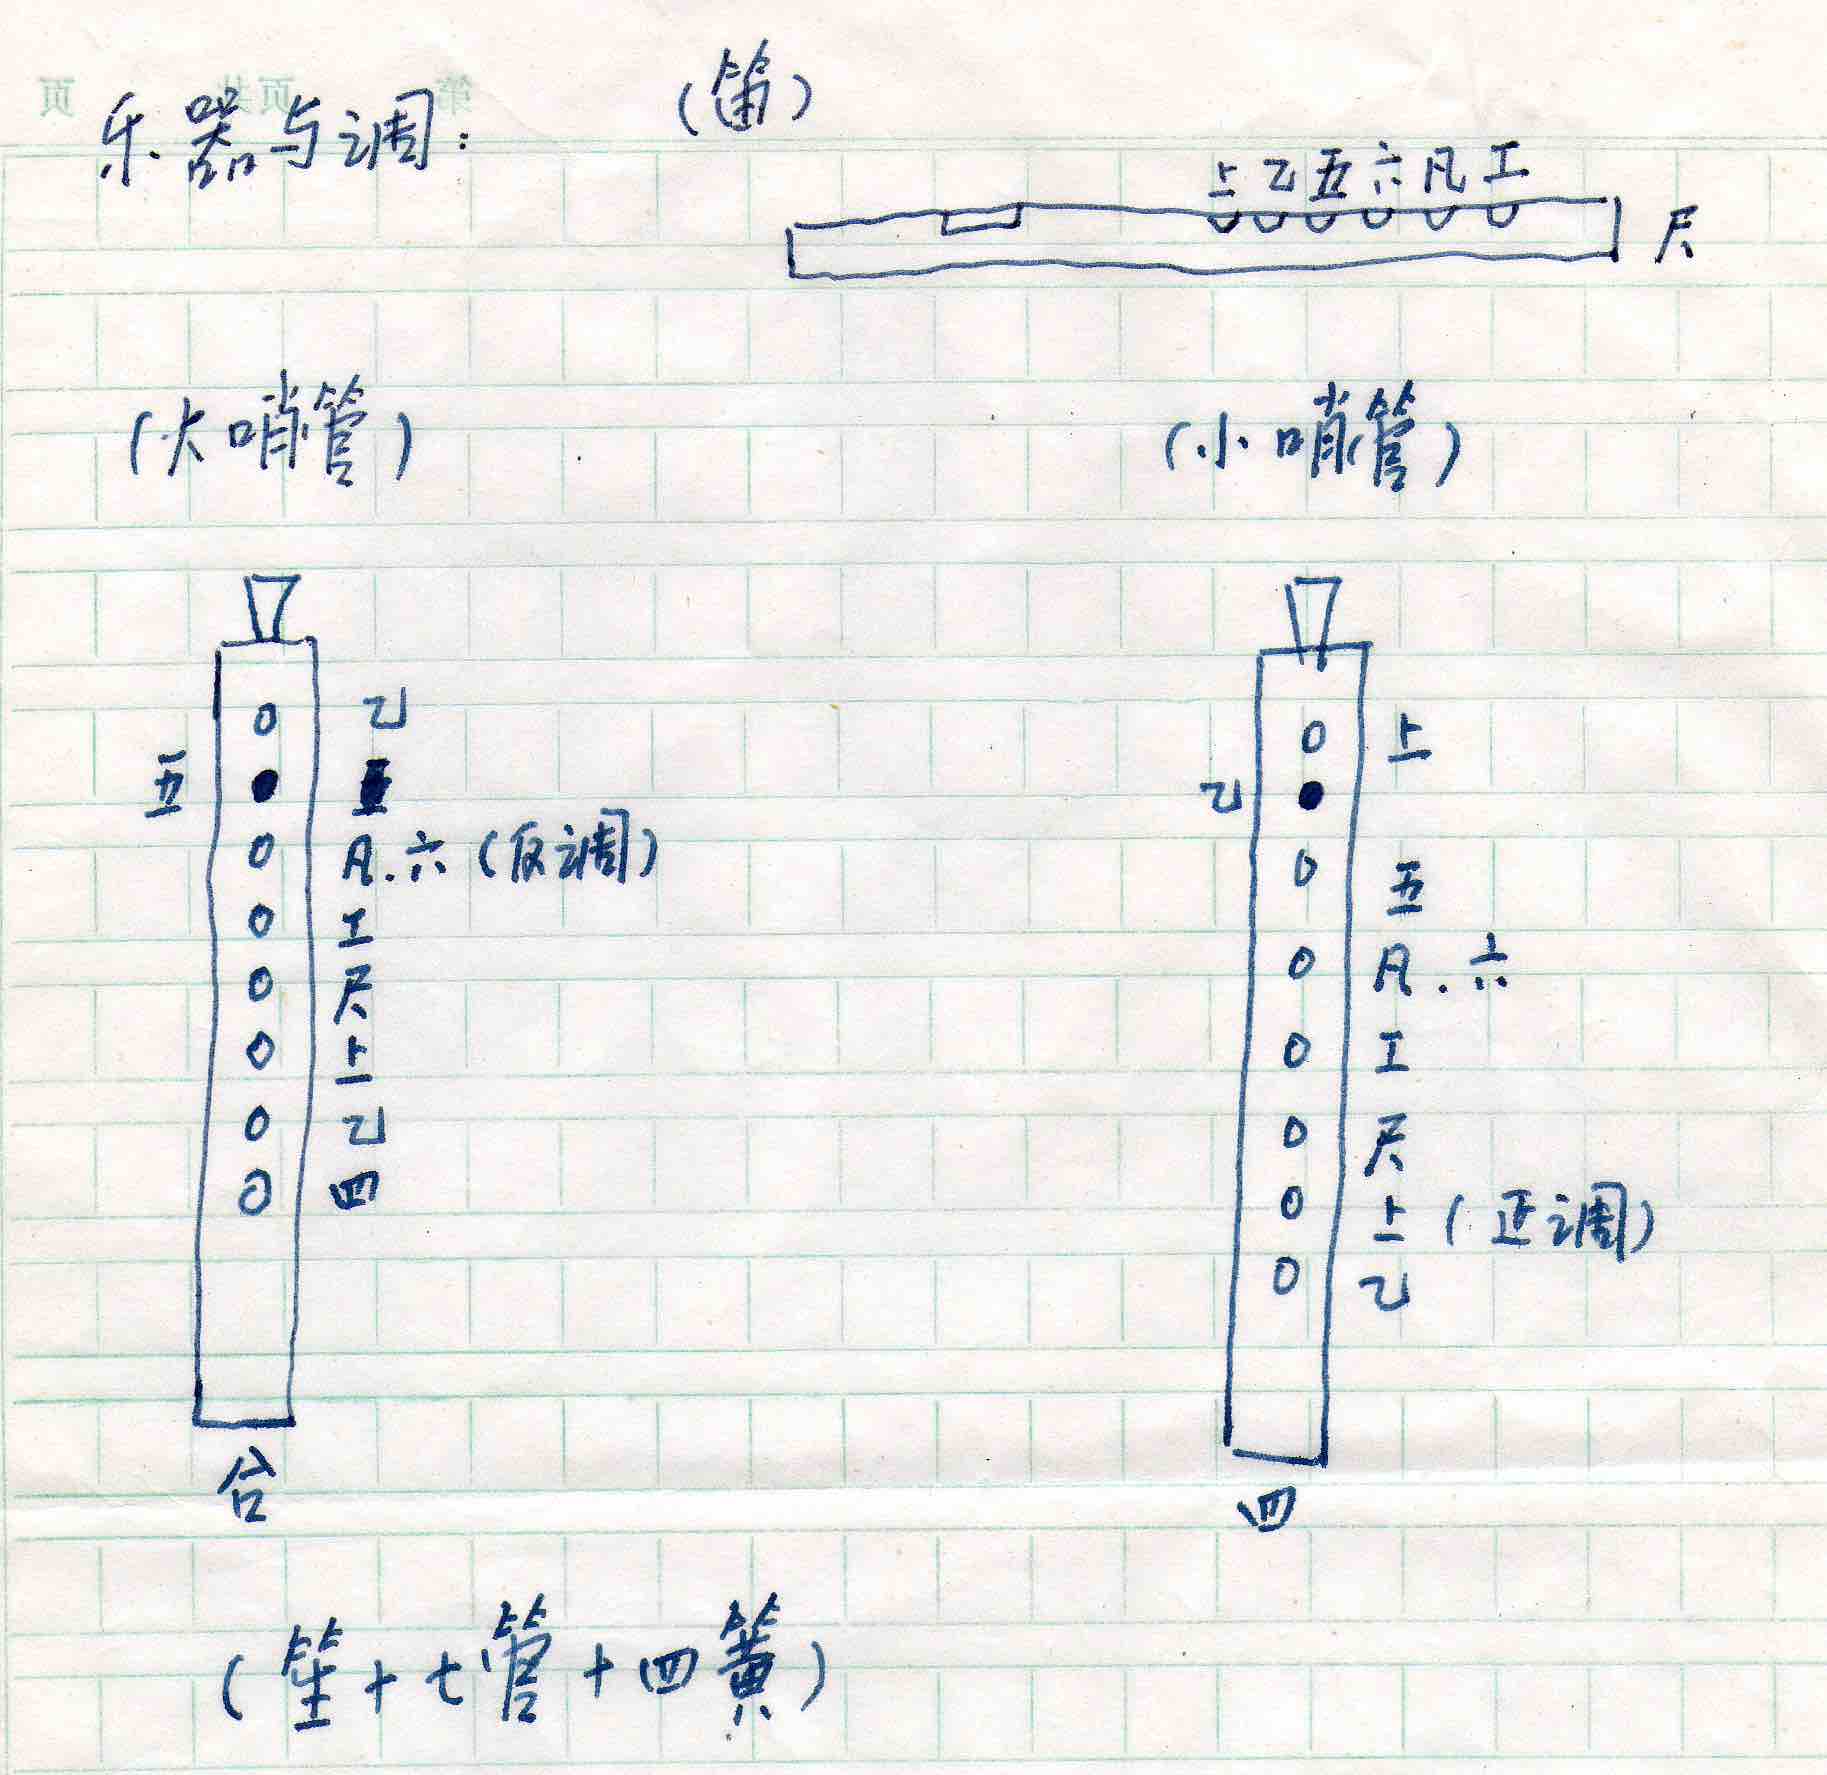 乐器与调：
（笛）
上乙五六凡工
尺
（大哨管）
乙
五
凡.六（反调）
工
尺
上
乙
四
合
（小哨管）
上
乙
五
凡.六
工
尺
上（正调）
乙
四
（笙十七管十四簧）